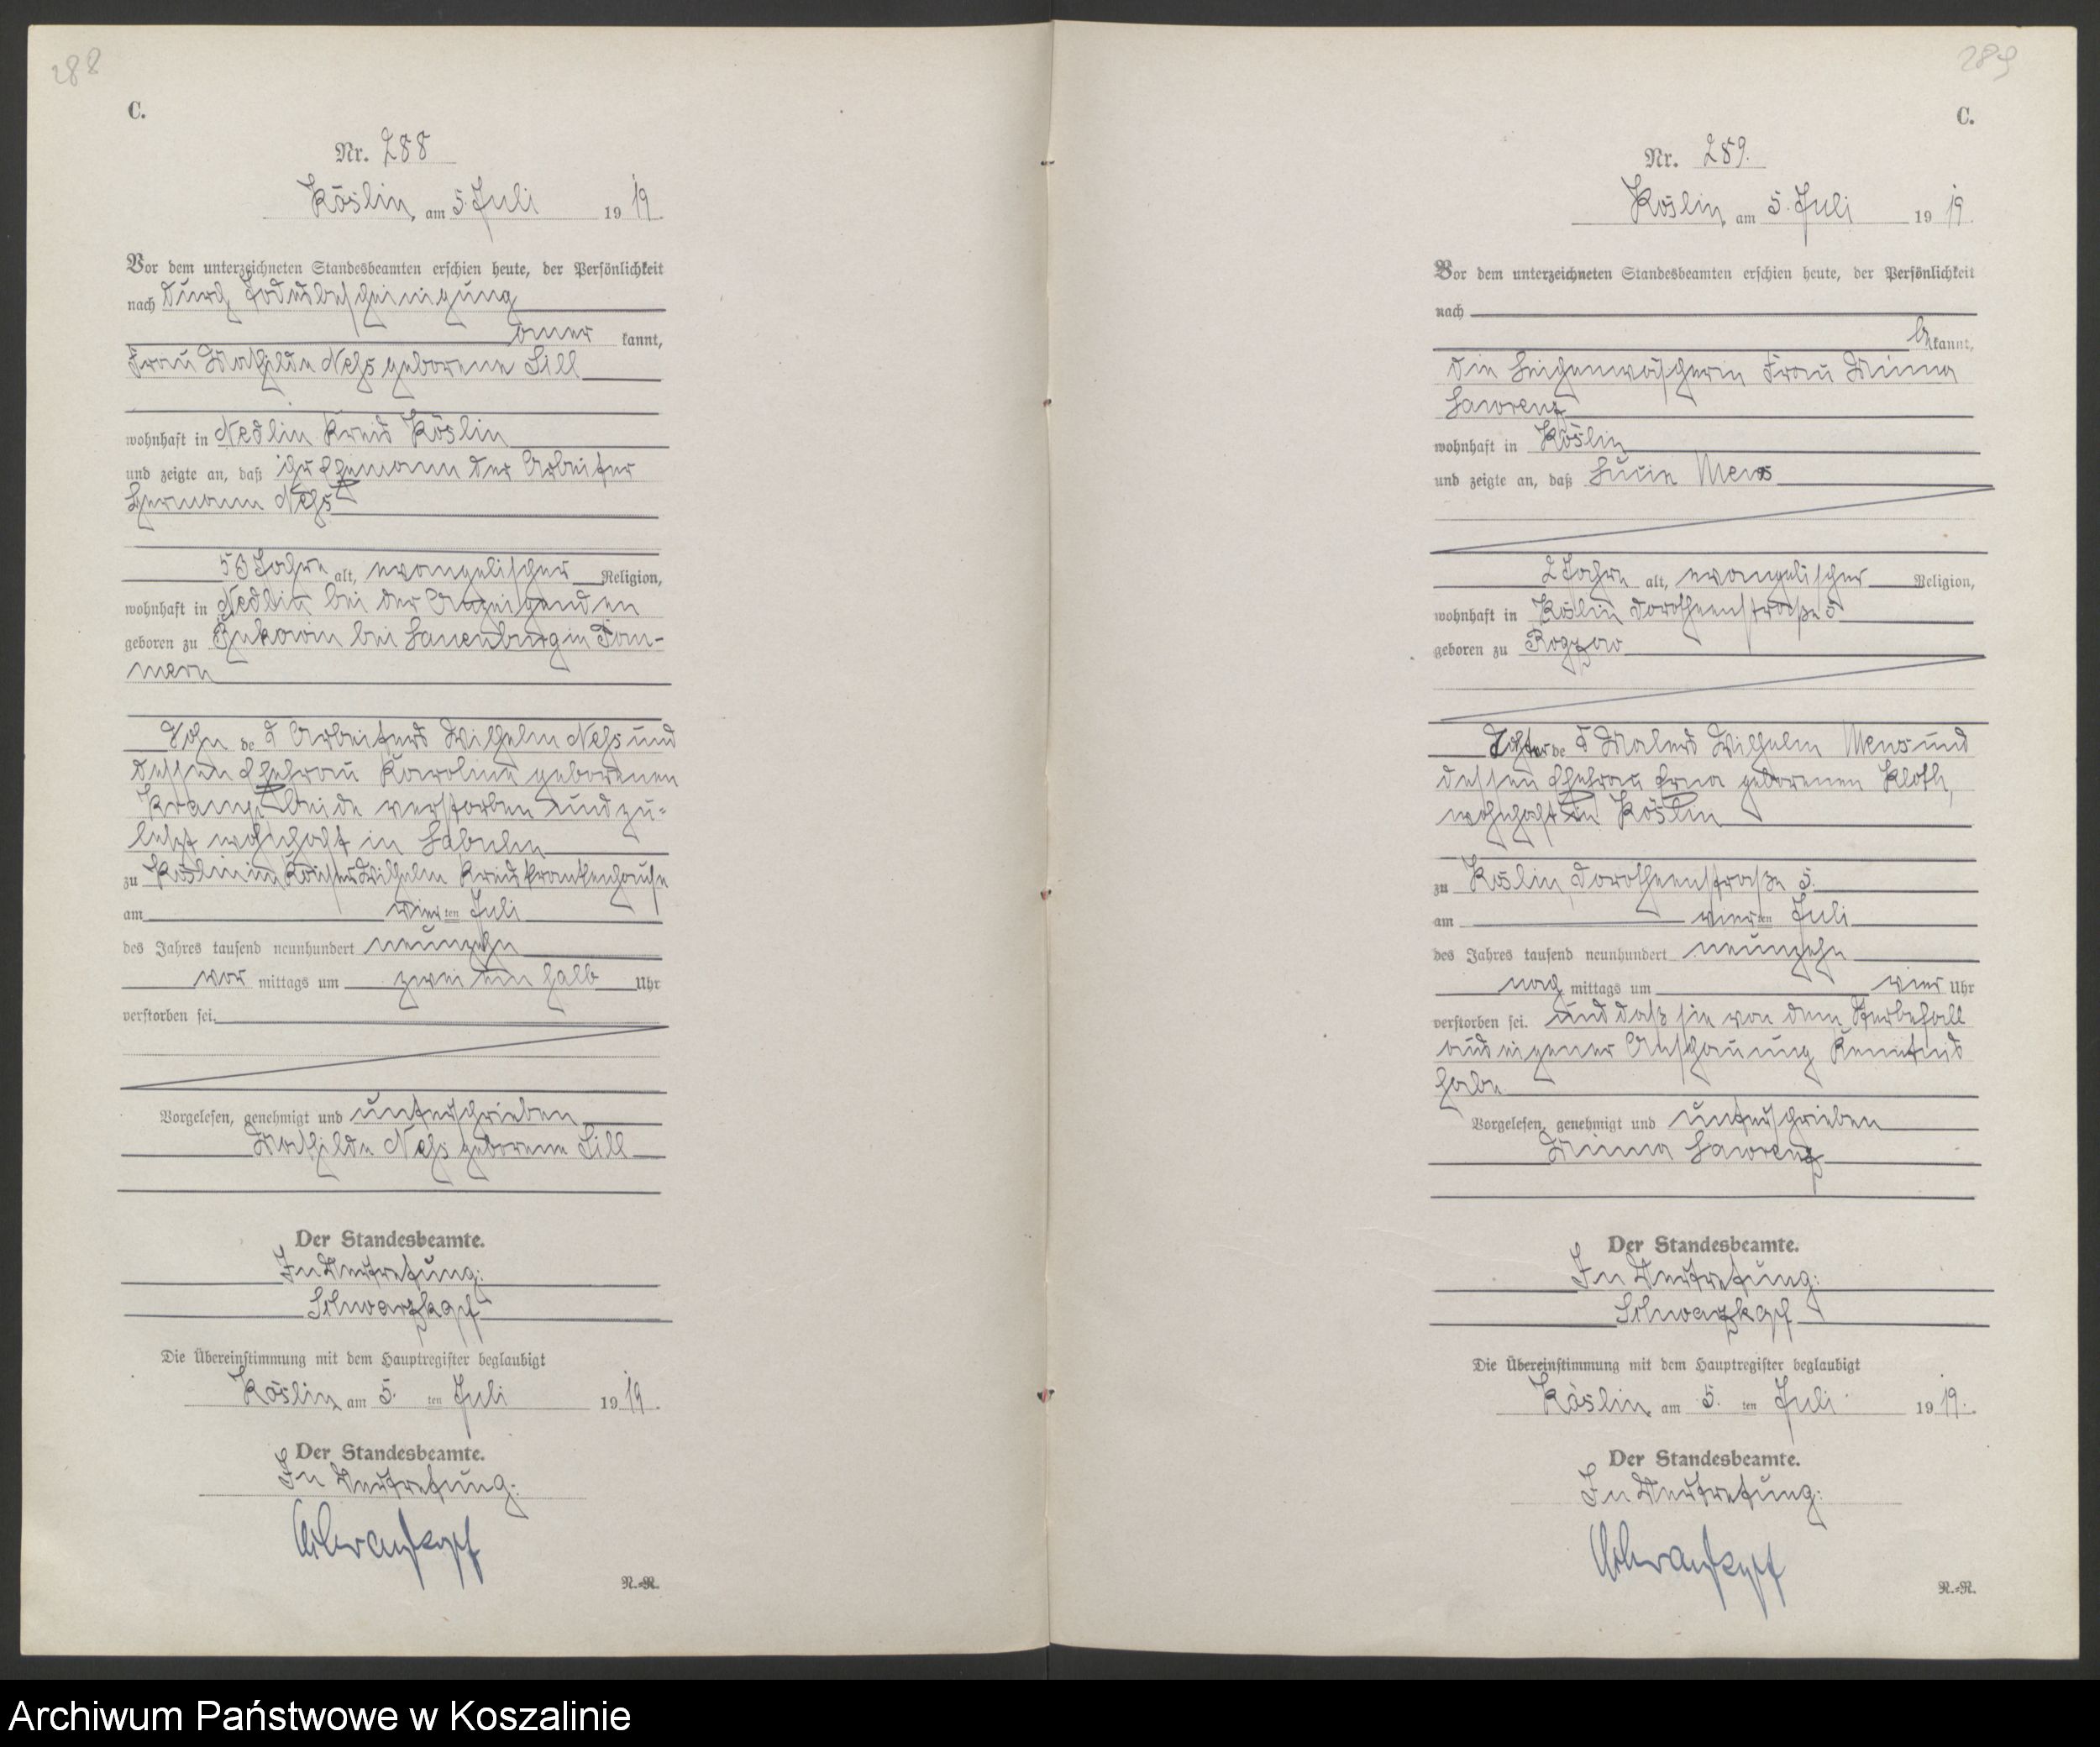 288
C.
Nr. 288
Köslin, am 5. Juli 19 19.
Vor dem unterzeichneten Standesbeamten erschien heute, der Persönlichkeit
nach durch Todesbescheinigung
aner kannt,
Frau Mathilde Nehs geborene Sill
wohnhaft in Nedlin Kreis Köslin
und zeigte an, daß ihr Ehemann der Arbeiter
Hermann Nehs
Jahre alt, evangelischer Religion,
wohnhaft in Nedlin bei der Anzeigenden
geboren zu bei Lauenburg in Pom-
mern
Sohn de s Arbeiters Wilhelm Nehs und
dessen Ehefrau Karoline geborenen
beide verstorben und zu-
letzt wohnhaft in Labuhn
zu Köslin im Kaiser Wilhelm Kreiskrankenhause
am vier ten Juli
des Jahres tausend neunhundert neunzehn
vor mittags um zwei ein halb Uhr
verstorben sei.
Vorgelesen, genehmigt und unterschrieben
Mathilde Nehs geborene Sill
Der Standesbeamte.
In Vertretung:
Schwarzkopf
Die Übereinstimmung mit dem Hauptregister beglaubigt
Köslin am 5. ten Juli 19 19.
Der Standesbeamte.
In Vertretung:
Schwarzkopf
R.=R.
289
C.
Nr. 289.
Köslin, am 5. Juli 19 19.
Vor dem unterzeichneten Standesbeamten erschien heute, der Persönlichkeit
nach
be kannt,
die Leichenwäscherin Frau Minna
Lawrenz
wohnhaft in Köslin
und zeigte an, daß Lucie Mews
2 Jahre alt, evangelischer Religion,
wohnhaft in Köslin Dorotheenstraße 5
geboren zu Rogzow
Tochter de s Malers Wilhelm Mews und
dessen Ehefrau Erna geborenen Kloth,
wohnhaft in Köslin
zu Köslin, Dorotheenstraße 5.
am vier ten Juli
des Jahres tausend neunhundert neunzehn
nach mittags um vier Uhr
verstorben sei. und daß sie von dem Sterbefall
aus eigener Anschauung Kenntnis
habe
Vorgelesen, genehmigt und unterschrieben
Minna Lawrenz
Der Standesbeamte.
In Vertretung:
Schwarzkopf
Die Übereinstimmung mit dem Hauptregister beglaubigt
Köslin am 5. ten Juli 19 19.
Der Standesbeamte.
In Vertretung:
Schwarzkopf
R.=R.
Archiwum Państwowe w Koszalinie